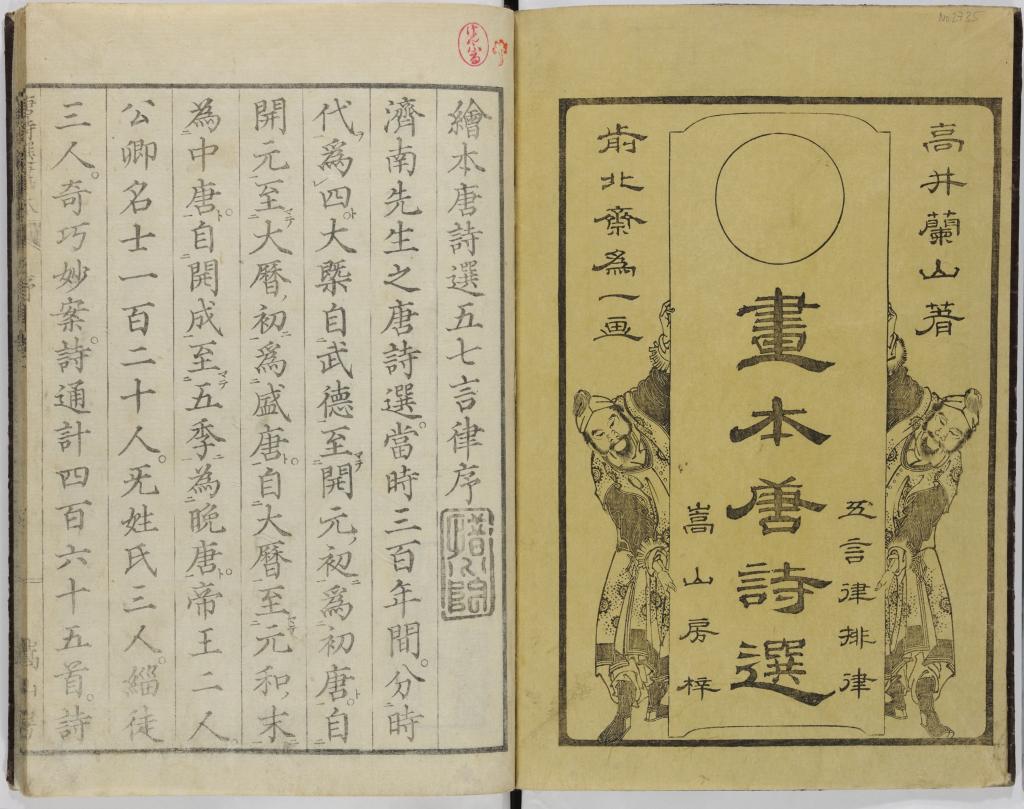 No 2735
高井蘭山著
五言律排律
畫本唐詩選
嵩山房梓
前北斎為一画
繪本唐詩選五七言律序
濟南先生之唐詩選。當時三百年間。分時
代為四。大槩自武德至開元初為初唐。自
開元至大曆初為盛唐。自大曆至元和末
為中唐。自開成至五季為晩唐。帝王二人
公卿名士一百二十人。旡姓氏三人。緇徒
三人。奇巧妙案。詩通計四百六十五首。詩